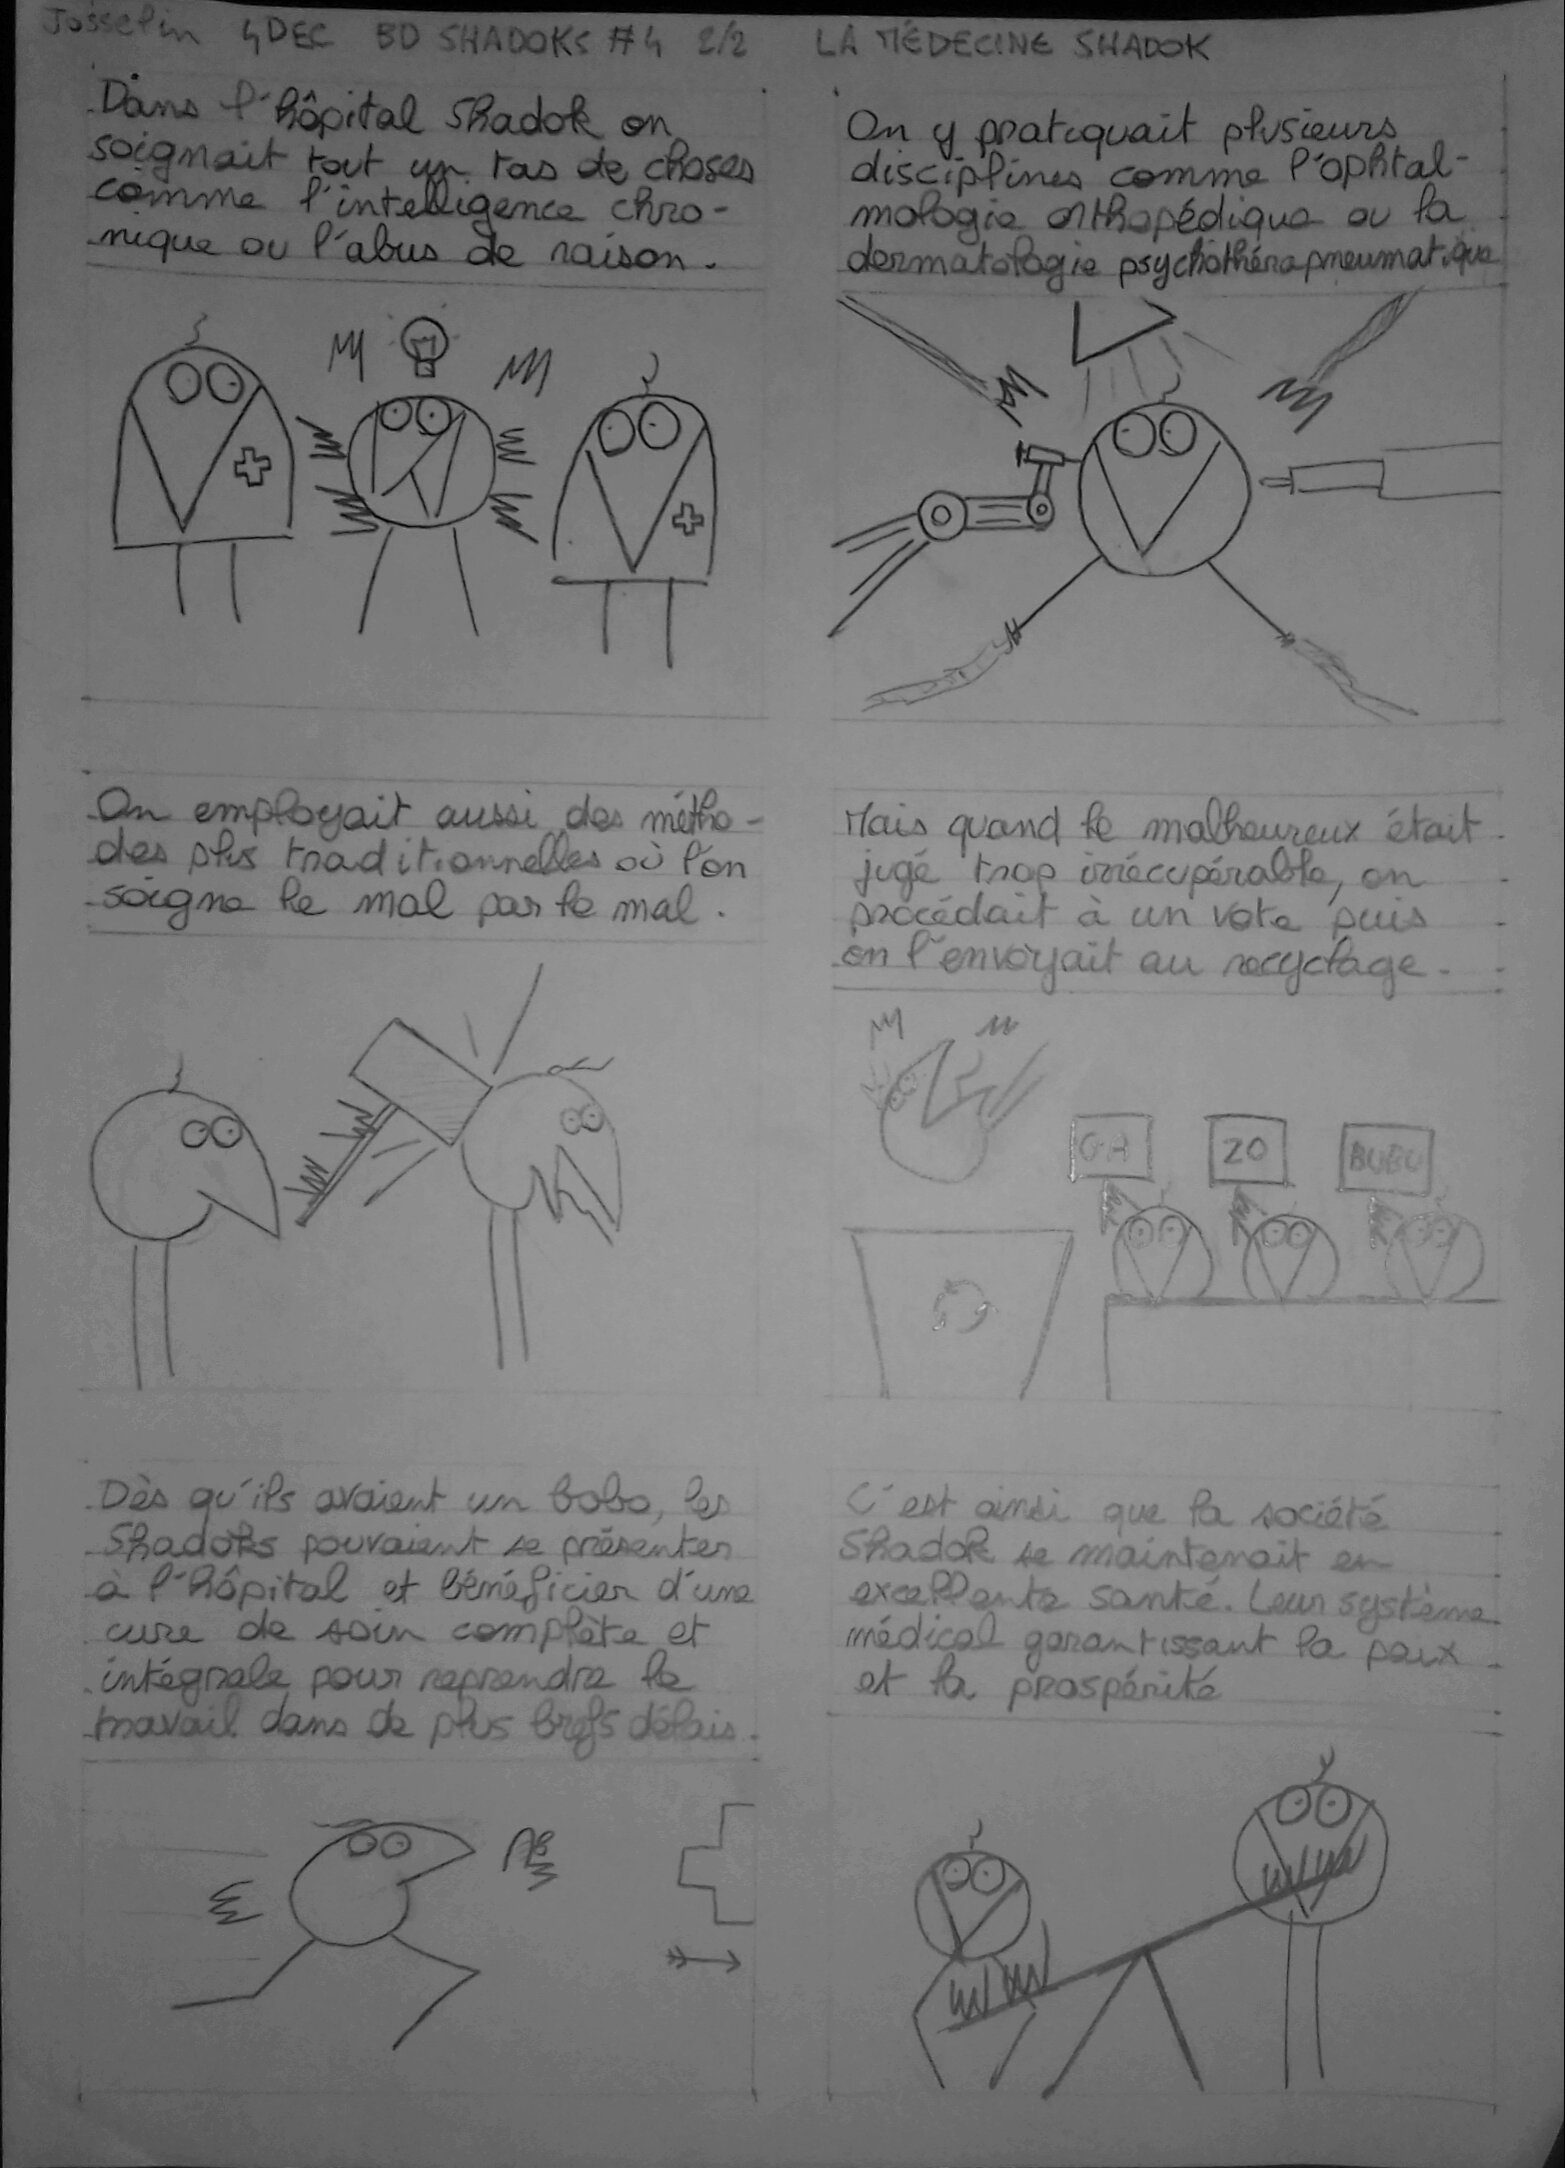 Josselin 4 DEC BD SHADOKS #4 2/2 LA MÉDECINE SHADOK
Dans l'hôpital Shadok on
soignait tout un tas de choses
comme l'intelligence chro-
nique ou l'abus de raison.
On y pratiquait plusieurs
disciplines comme l'ophtal-
mologie orthopédique ou la
dermatologie psychothérapneumatique
On employait aussi des métho-
des plus traditionnelles où l'on
soigne le mal par le mal.
Mais quand le malheureux était
jugé trop irrécupérable, on
procédait à un vote puis
on l'envoyait au recyclage.
GA
ZO
BUBU
Dès qu'ils avaient un bobo, les
Shadoks pouvaient se présenter
à l'hôpital et bénéficier d'une
cure de soin complète et
intégrale pour reprendre le
travail dans de plus brefs délais.
C'est ainsi que la société
Shadok se maintenait en
excellente santé. Leur système
médical garantissant la paix
et la prospérité